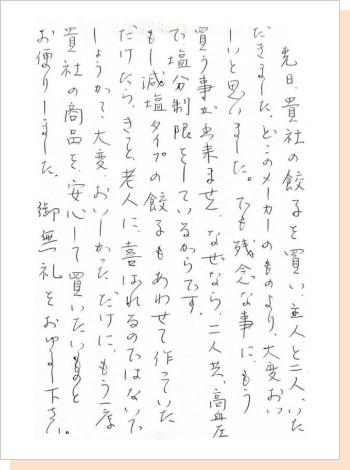 先日、貴社の餃子を買い、主人と二人、いた
だきました。どこのメーカーのものより、大変おい
しいと思いました。でも残念な事に、もう
買う事が出来ません。なぜなら、二人共、高血圧
で、塩分制限をしているからです。
もし減塩タイプの餃子もあわせて作っていた
だけたら、きっと老人に、喜ばれるのではないで
しょうか？大変、おいしかっただけに、もう一度
貴社の商品を、安心して買いたいものと
お便りしました。御無礼をおゆるし下さい。